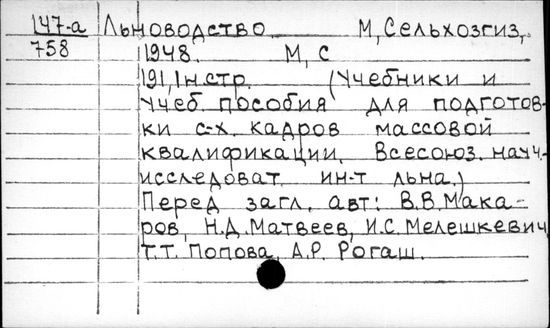 147-а Льноводство М, Сельхозгиз,
758 1948. М, С
191, 1 н. стр. (Учебники и
учеб. пособия для подготов-
ки с-х. кадров массовой
квалификации. Всесоюз. науч.-
исследоват. ин-т льна.)
Перед загл. авт: В.В. Мака-
ров, Н.Д. Матвеев, И.С. Мелешкевич,
Т.Т. Попова, А.Р. Рогаш.